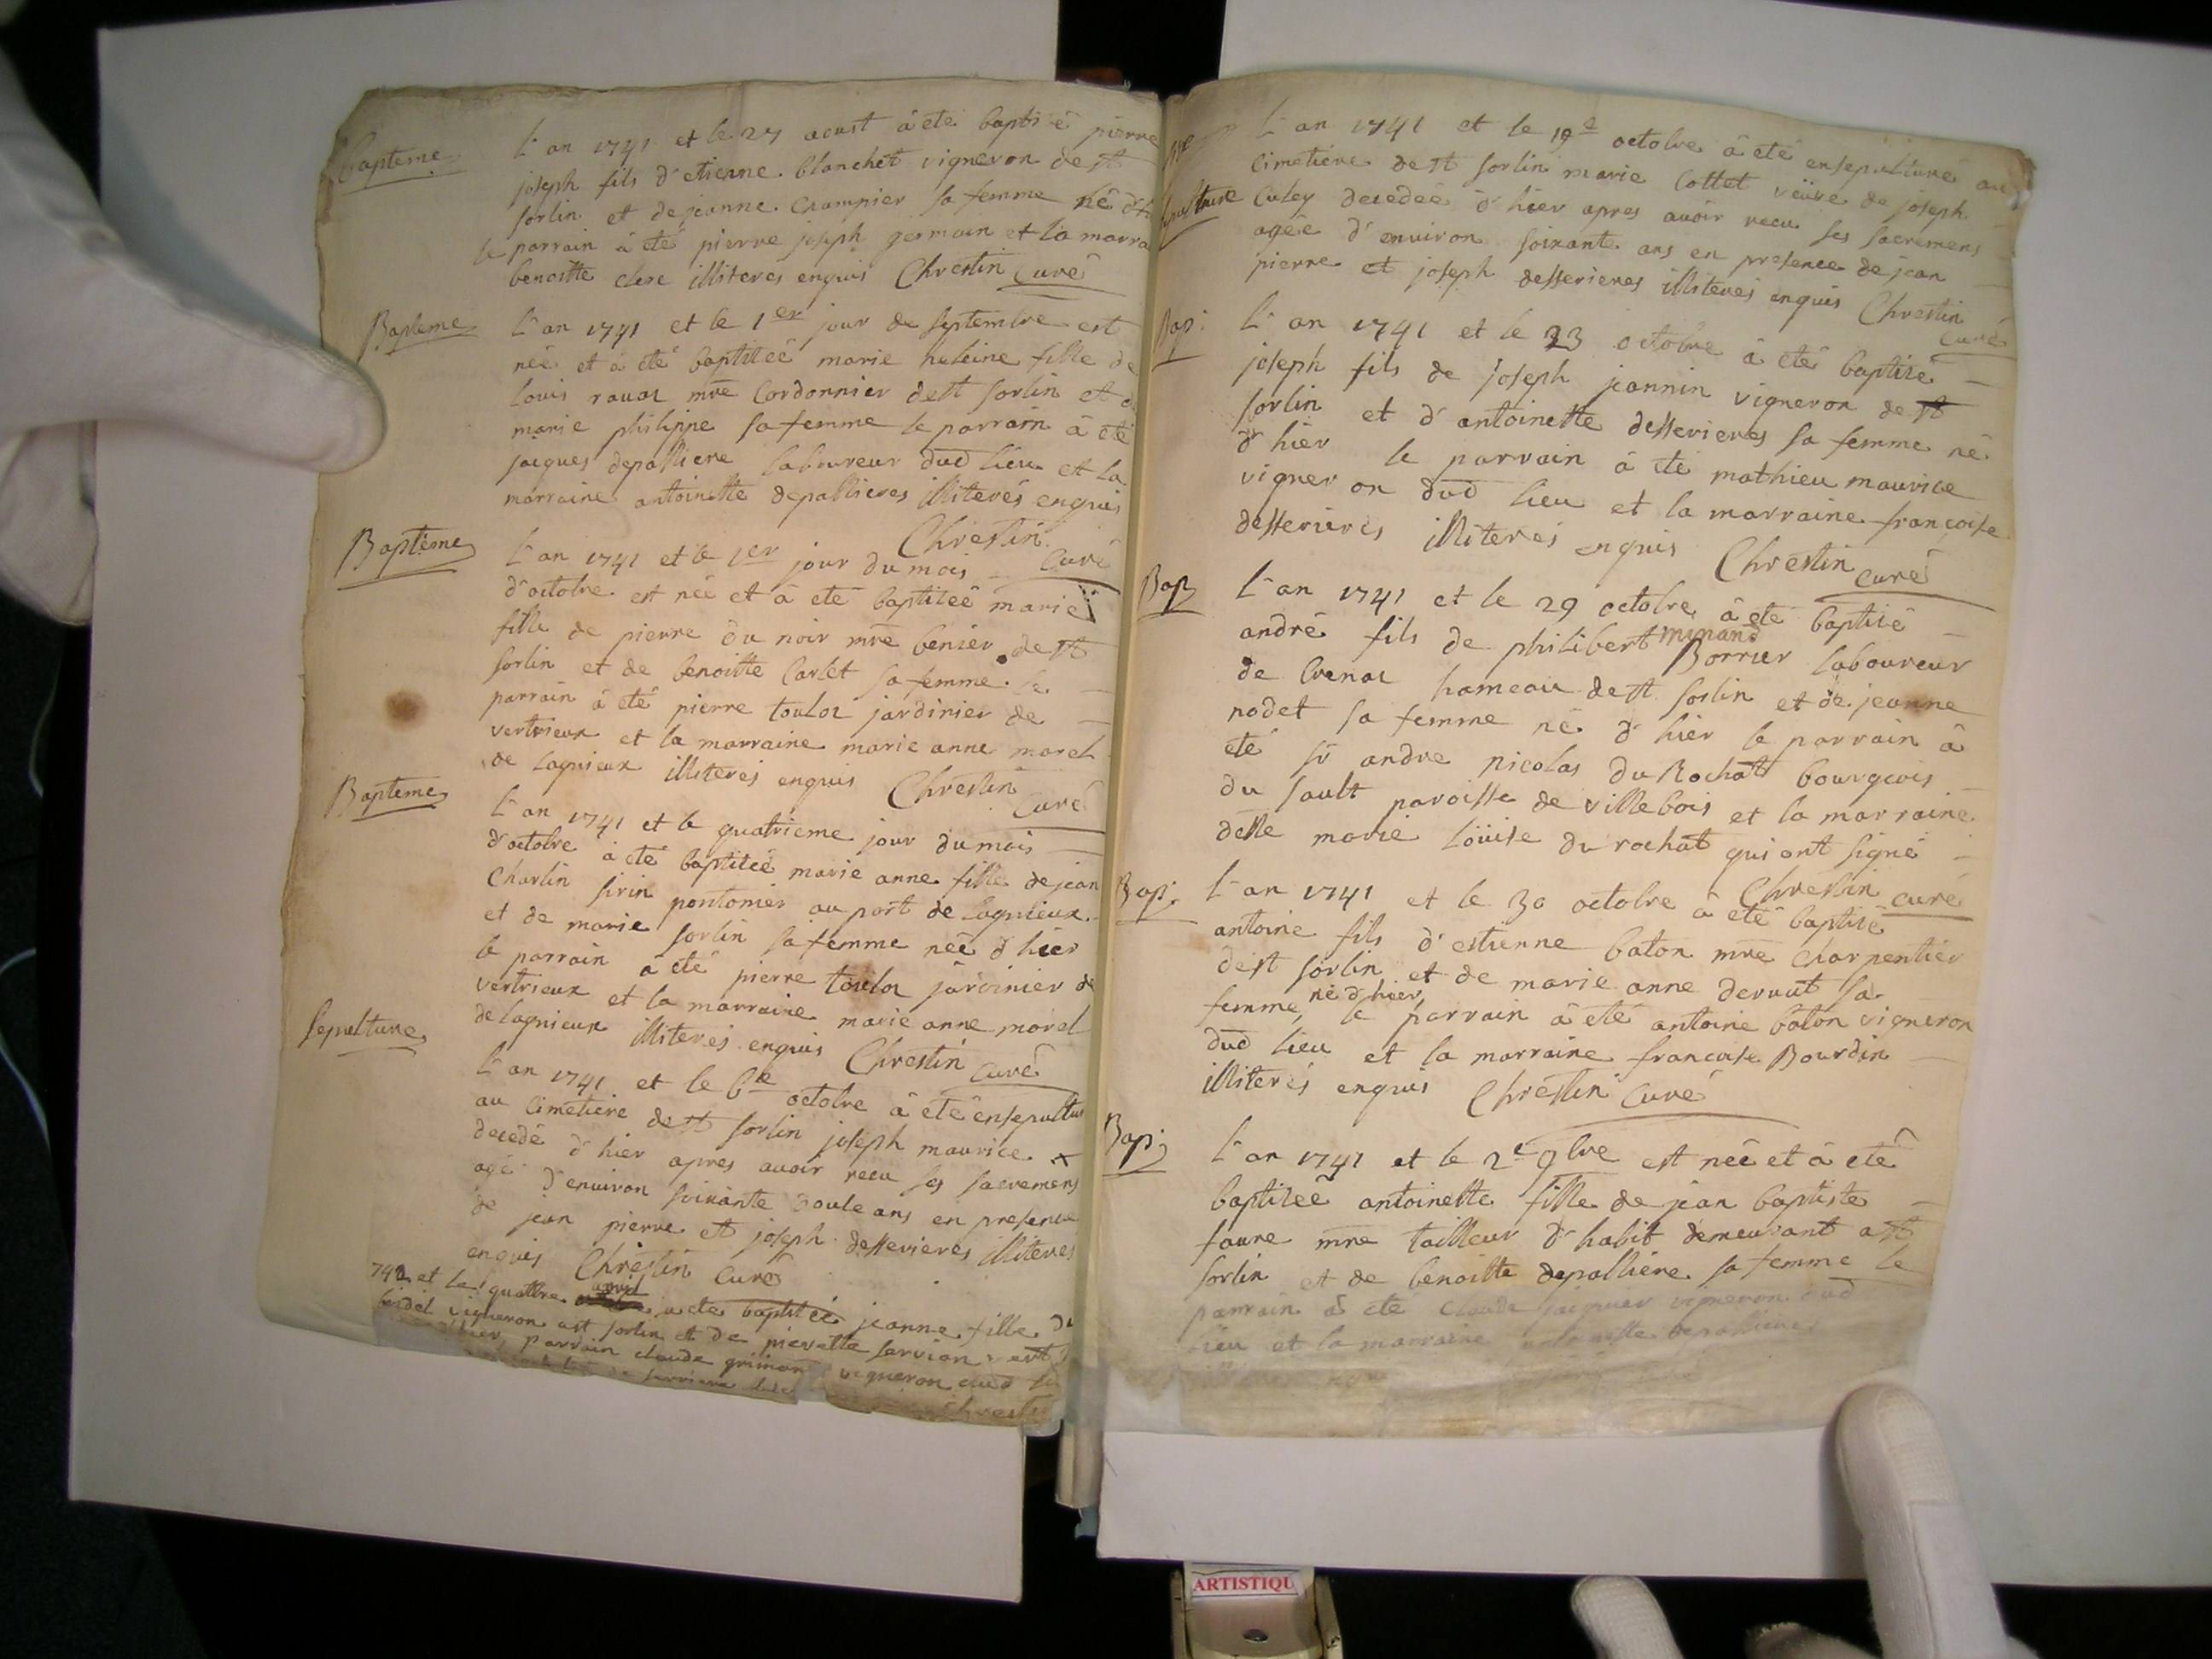 Bapteme
L'an 1741 et le 27 aoust à eté baptisé pierre
joseph fils d'etienne blanchet vigneron de st
sorlin et de jeanne Crampier sa femme né d'hi
le parrain à eté pierre joseph germain et la marra
benoitte clere illiteres enquis Chrestin Curé
Bapteme
L'an 1741 et le 1er jour de septembre est
née et à eté baptiseé marie heleine fille de
Louis rauat mre Cordonnier de st sorlin et de
marie philippe sa femme le parrain à eté
jacques depalliere laboureur dud lieu et la
marraine antoinette depallieres illiterés enquis
Chrestin Curé
Bapteme
L'an 1741 et le 1er jour du mois
d'octobre est née et à eté baptiseé marie
fille de pierre du noir mre benier de st
sorlin et de benoitte Carlet sa femme le
parrain à eté pierre toulor jardinier de
vertrieux et la marraine marie anne morel
de Lagnieux illiterés enquis Chrestin
Curé
Bapteme
L'an 1741 et le quatrieme jour du mois
d'octobre à eté baptiseé marie anne fille de jean
Charlin sirin pontonier au port de Lagnieux
et de marie sorlin sa femme née d'hier
le parrain à eté pierre toulor jardinier de
vertrieux et la marraine marie anne morel
de Lagnieux illiterés enquis Chrestin
Curé
Sepulture
L'an 1741 et le 6e octobre à eté ensepultu
au Cimetiere de st sorlin joseph maurice x
decedé d'hier apres avoir receu ses sacremens
agé d'environ soixante douse ans en presence
de jean pierre et joseph desserieres illiteres
enquis Chrestin Curé
742 et le quattre avril a eté baptiseé jeanne fille de
vigneron a st sorlin et de pierette servian
parrain claude vigneron dud
Chresti
Sepulture
L'an 1741 et le 19e octobre à eté ensepulturé au
Cimetiere de st sorlin marie Cottet veüve de joseph
Culey decedeé d'hier apres avoir receu ses sacremens
ageé d'environ soixante ans en presence de jean
pierre et joseph desserieres illiterés enquis Chrestin
Curé
Bap:
L'an 1741 et le 23 octobre à eté baptisé
joseph fils de joseph jeannin vigneron de st
sorlin et d'antoinette desserieres sa femme né
d'hier le parrain à eté mathieu maurice
vigneron dud lieu et la marraine francoise
desserieres illiterés enquis Chrestin
Curé
Bap
L'an 1741 et le 29 octobre à eté baptisé
andré fils de philibert minand Borrier laboureur
de Crenat hameau de st sorlin et de jeanne
nodet sa femme né d'hier le parrain à
eté sr andre nicolas du Rochat bourgeois
du sault paroisse de villebois et la marraine
delle marie Loüise du rochat qui ont signé
Chrestin curé
Bap:
L'an 1741 et le 30 octobre à eté baptisé
antoine fils d'estienne baton mre Charpentier
de st sorlin et de marie anne dervat sa
femme, né d'hier, le parrain à eté antoine baton vigneron
dud lieu et la marraine francoise Bourdin
illiterés enquis Chrestin Curé
Bap:
L'an 1741 et le 2e 9bre est neé et à eté
baptiseé antoinette fille de jean baptiste
faure mre tailleur d'habit demeurant a st
sorlin et de benoitte depalliere sa femme le
parrain à eté Claude vigneron dud
lieu et la marraine antoinette depallieres
ARTISTIQU